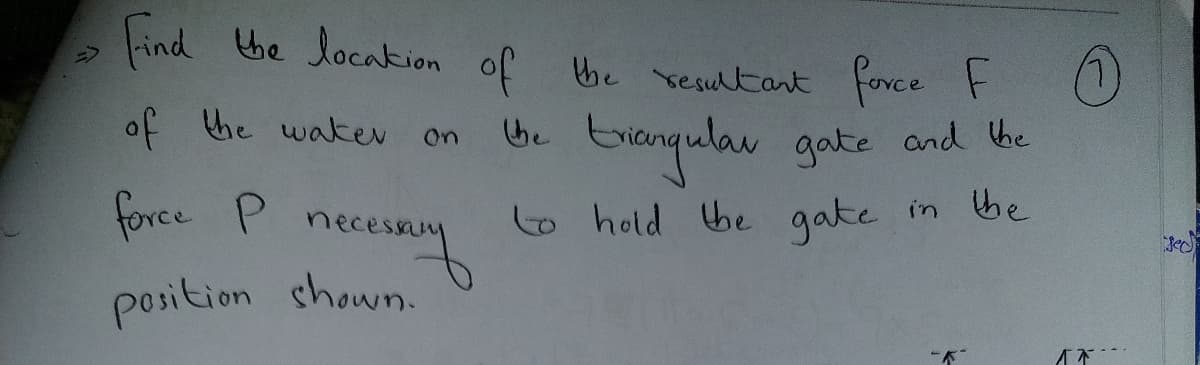 => Find the location of the resultant force F ①
of the water on the triangular gate and the
force P necessary to hold the gate in the
position shown.